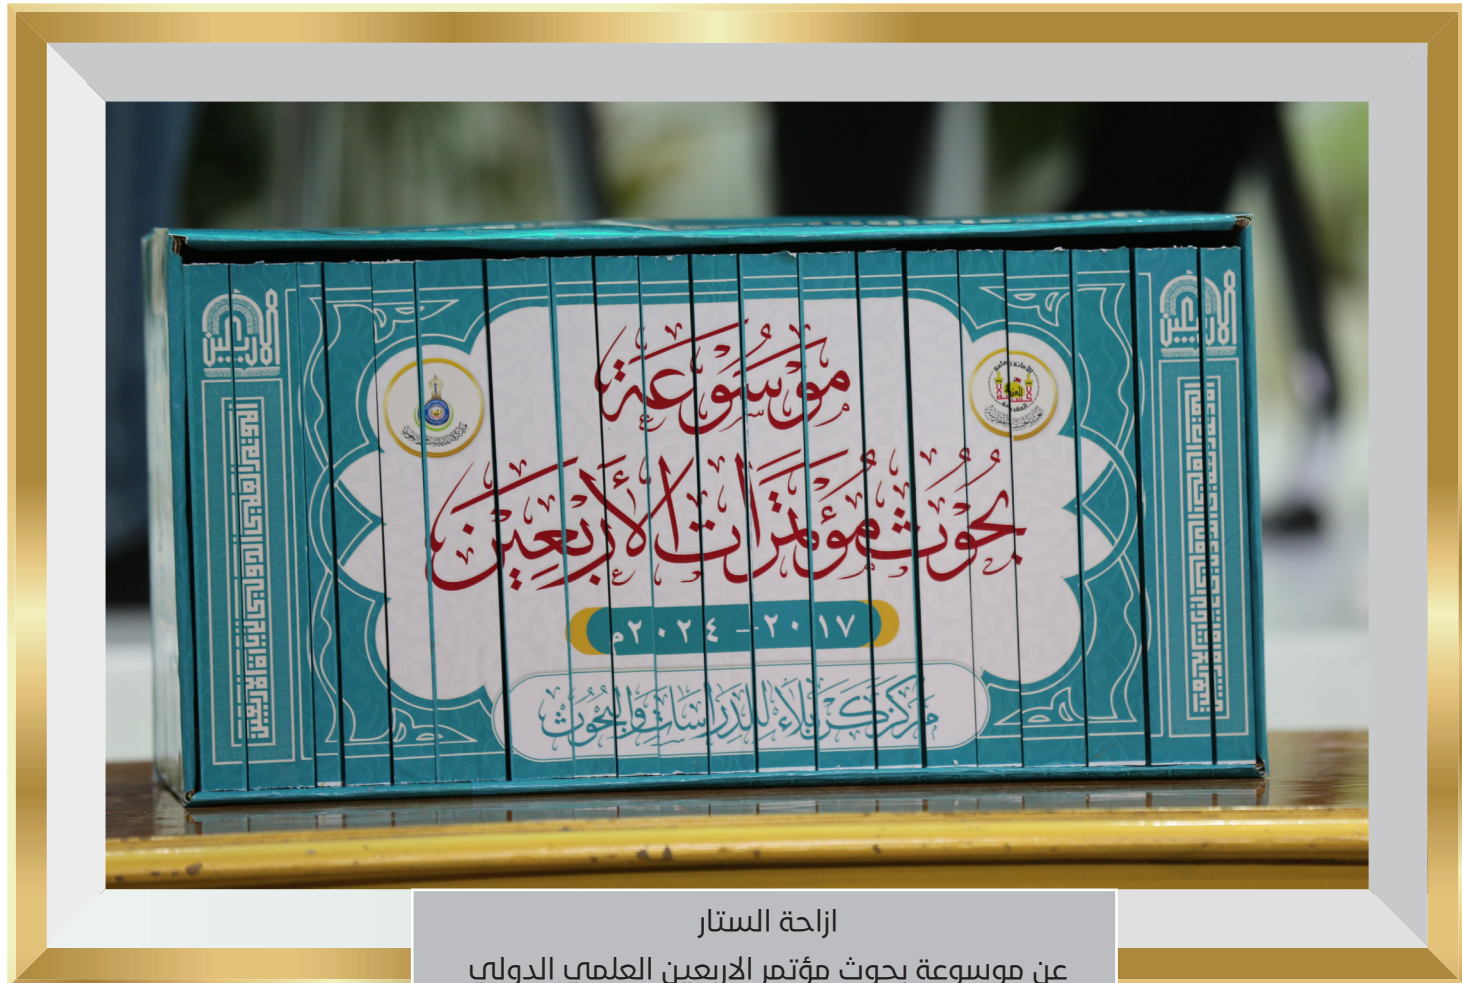 موسوعة
بحوث مؤتمرات الأربعين
٢٠١٧ – ٢٠٢٤م
مركز كربلاء للدراسات والبحوث
الأربعين
الأربعين
ازاحة الستار
عن موسوعة بحوث مؤتمر الاربعين العلمي الدولي